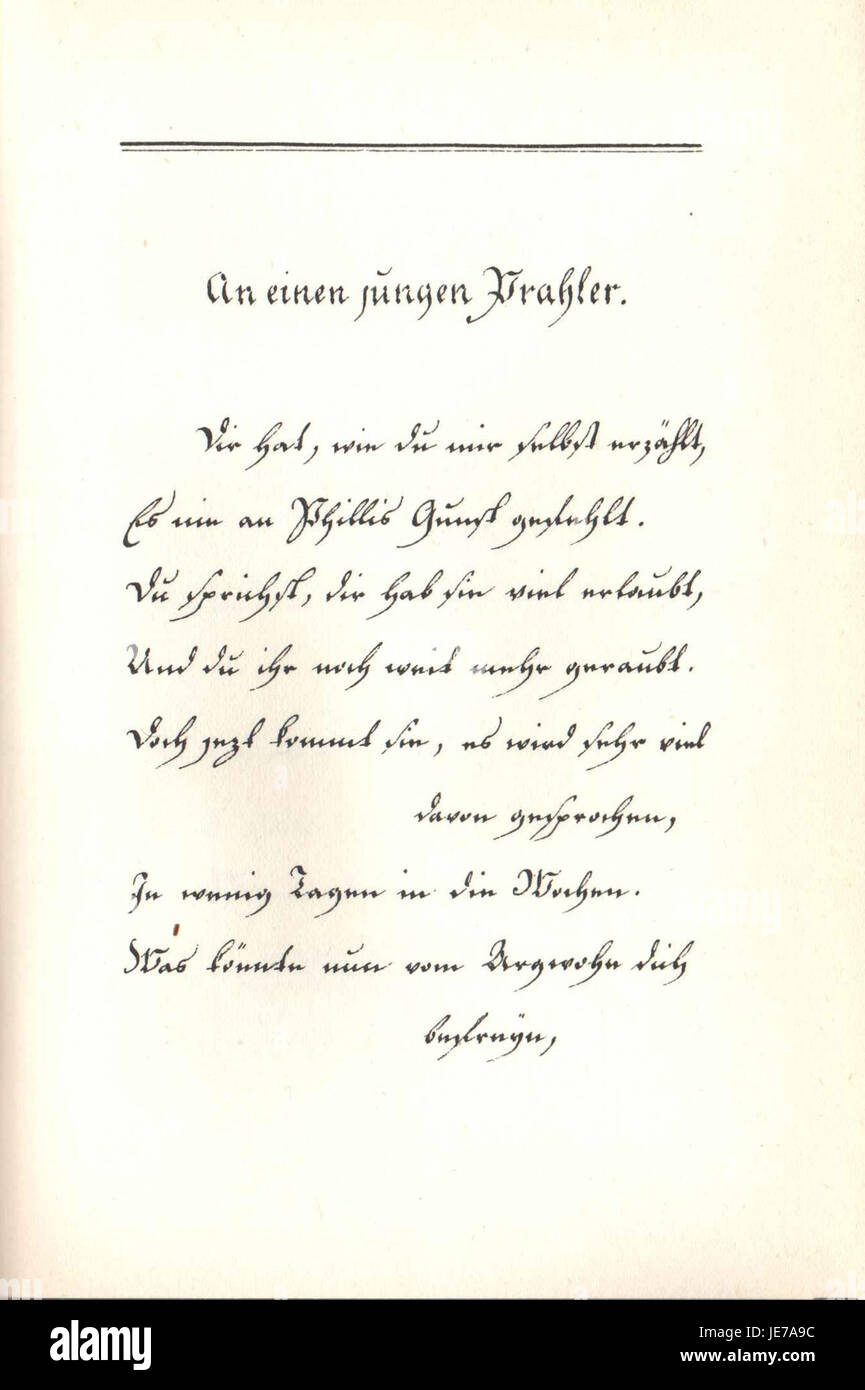 An einen jungen Prahler.
Dir hat, wie du mir selbst erzählt,
Es nie an Phillis Gunst gefehlt.
Du sprichst, dir hab sie viel erlaubt,
Und du ihr noch weit mehr geraubt.
Doch jezt kommt sie, es wird sehr viel
davon gesprochen,
In wenig Tagen in die Wochen.
Was könnte nun vom Argwohn dich
befreyn,
alamy
Image ID: JE7A9C
www.alamy.com